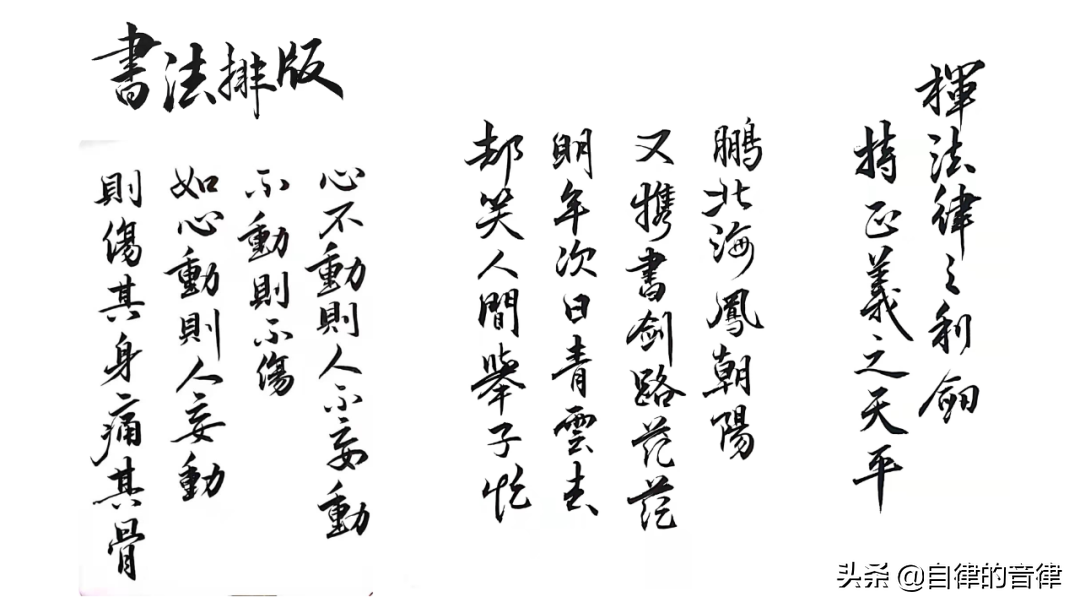 書法排版
揮法律之利劍
持正義之天平
鵬北海鳳朝陽
又携書劍路茫茫
明年次日青雲去
却笑人間舉子忙
心不動則人不妄動
不動則不傷
如心動則人妄動
則傷其身痛其骨
头条 @自律的音律